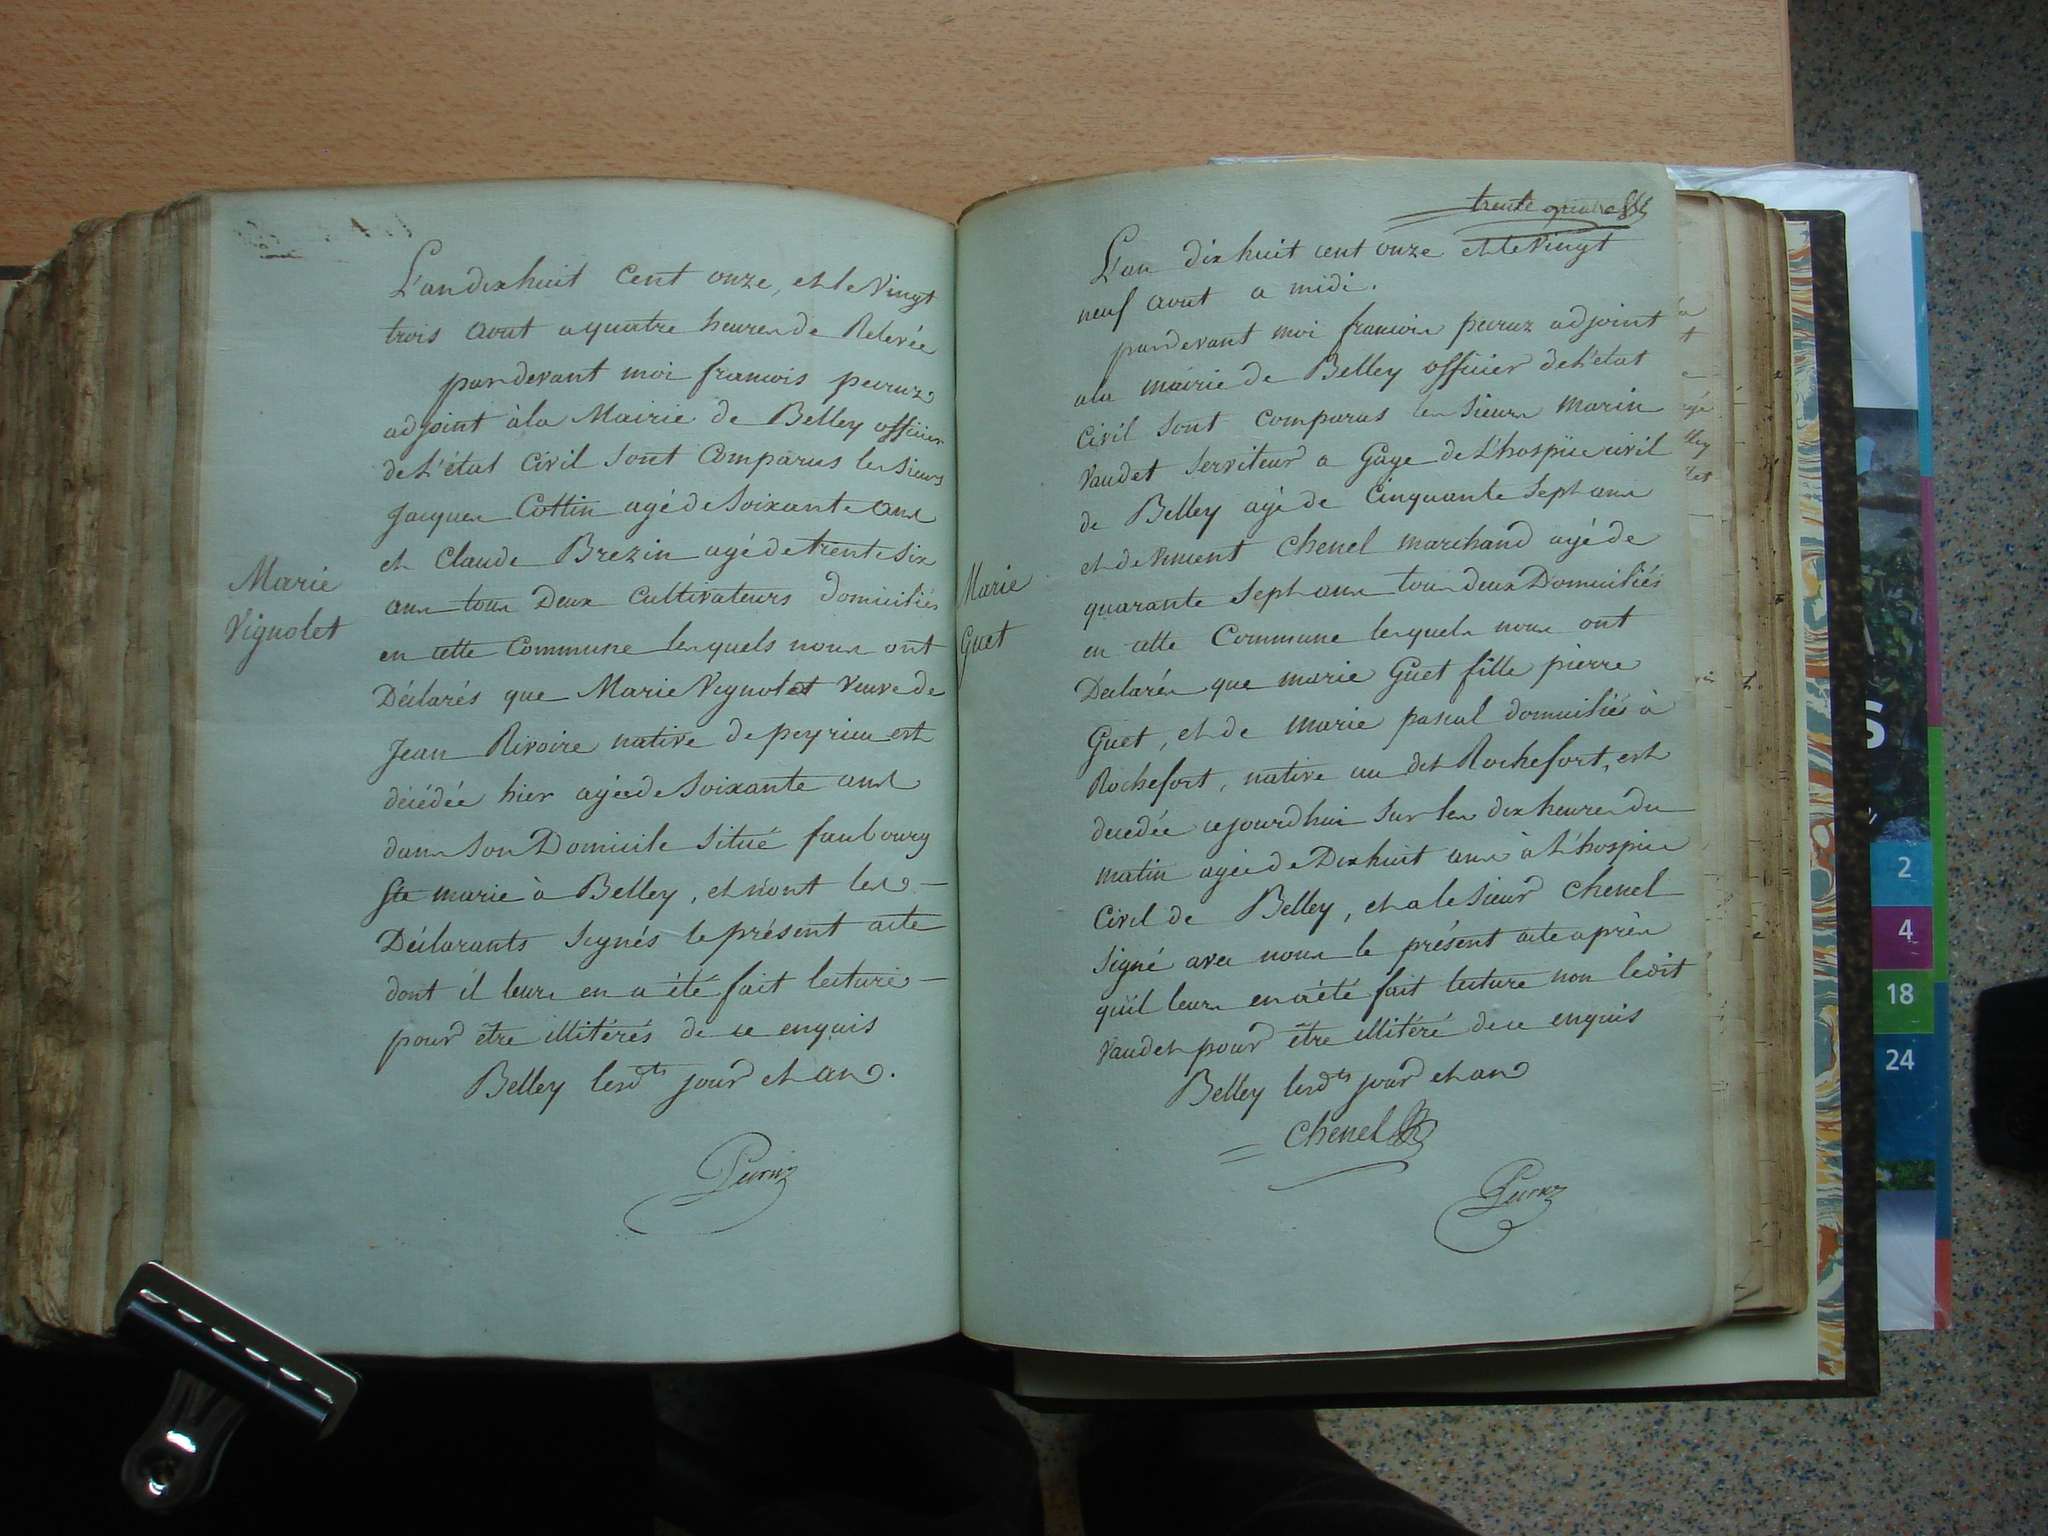 Marie
Vignolet
L'an dix huit cent onze, et le vingt
trois aout a quatre heures de Relevée
pardevant moi francois peiruz
adjoint à la Mairie de Belley officier
de L'état civil sont comparus les sieurs
Jacques Cottin agé de soixante ans
et Claude Brezin agé de trente six
ans tous Deux cultivateurs domiciliés
en cette commune lesquels nous ont
Déclarés que Marie Vignolet veuve de
Jean Rivoire native de peyrieu est
décédée hier agée de soixante ans
dans son Domicile situé faubourg
Ste marie à Belley, et n'ont les
Déclarants signés le présent acte
dont il leurs en a été fait lecture
pour être illitérés de ce enquis
Belley lesdts jour et an.
trente quatre
Marie
Guet
L'an dix huit cent onze et le vingt
neuf aout a midi.
pardevant moi francois peiruz adjoint
a la mairie de Belley officier de l'état
civil sont comparus les sieurs marin
vaudet serviteur a Gage de L'hospice civil
de Belley agé de cinquante sept ans
et de vincent chenel marchand agé de
quarante sept ans tous deux Domiciliés
en cette commune lesquels nous ont
Declarés que marie Guet fille pierre
Guet, et de marie pascal domiciliés à
Rochefort, native au dt Rochefort, est
decedée cejourdhui sur les dix heures du
matin agée de Dix huit ans à L'hospice
civil de Belley, et a le sieur chenel
signé avec nous le présent acte après
qu'il leurs en a été fait lecture non ledit
vaudet pour être illitéré de ce enquis
Belley lesdts jour et an
chenel
S
2
4
18
24